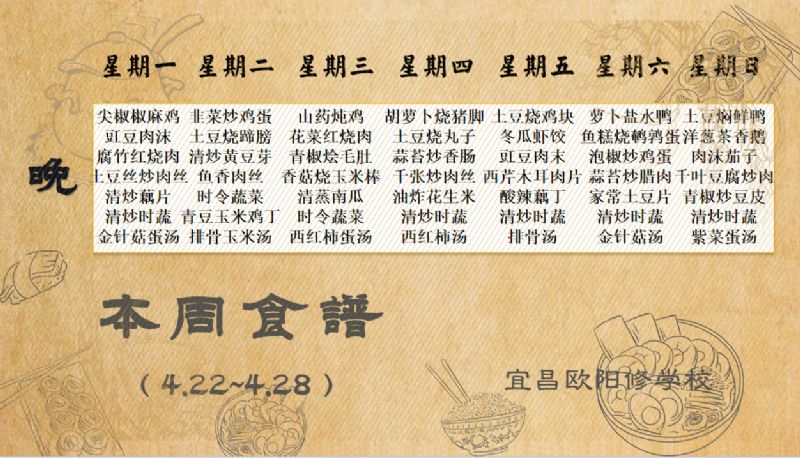 星期一 星期二 星期三 星期四 星期五 星期六 星期日
尖椒椒麻鸡 韭菜炒鸡蛋 山药炖鸡 胡萝卜烧猪脚 土豆烧鸡块 萝卜盐水鸭 土豆焖鲜鸭
豇豆肉沫 土豆烧蹄膀 花菜红烧肉 土豆烧丸子 冬瓜虾饺 鱼糕烧鹌鹑蛋 洋葱茶香鹅
腐竹红烧肉 清炒黄豆芽 青椒烩毛肚 蒜苔炒香肠 豇豆肉末 泡椒炒鸡蛋 肉沫茄子
晚
土豆丝炒肉丝 鱼香肉丝 香菇烧玉米棒 千张炒肉丝 西芹木耳肉片 蒜苔炒腊肉 千叶豆腐炒肉
清炒藕片 时令蔬菜 清蒸南瓜 油炸花生米 酸辣藕丁 家常土豆片 青椒炒豆皮
清炒时蔬 青豆玉米鸡丁 时令蔬菜 清炒时蔬 清炒时蔬 清炒时蔬 清炒时蔬
金针菇蛋汤 排骨玉米汤 西红柿蛋汤 西红柿汤 排骨汤 金针菇汤 紫菜蛋汤
本周食譜
（4.22~4.28）
宜昌欧阳修学校